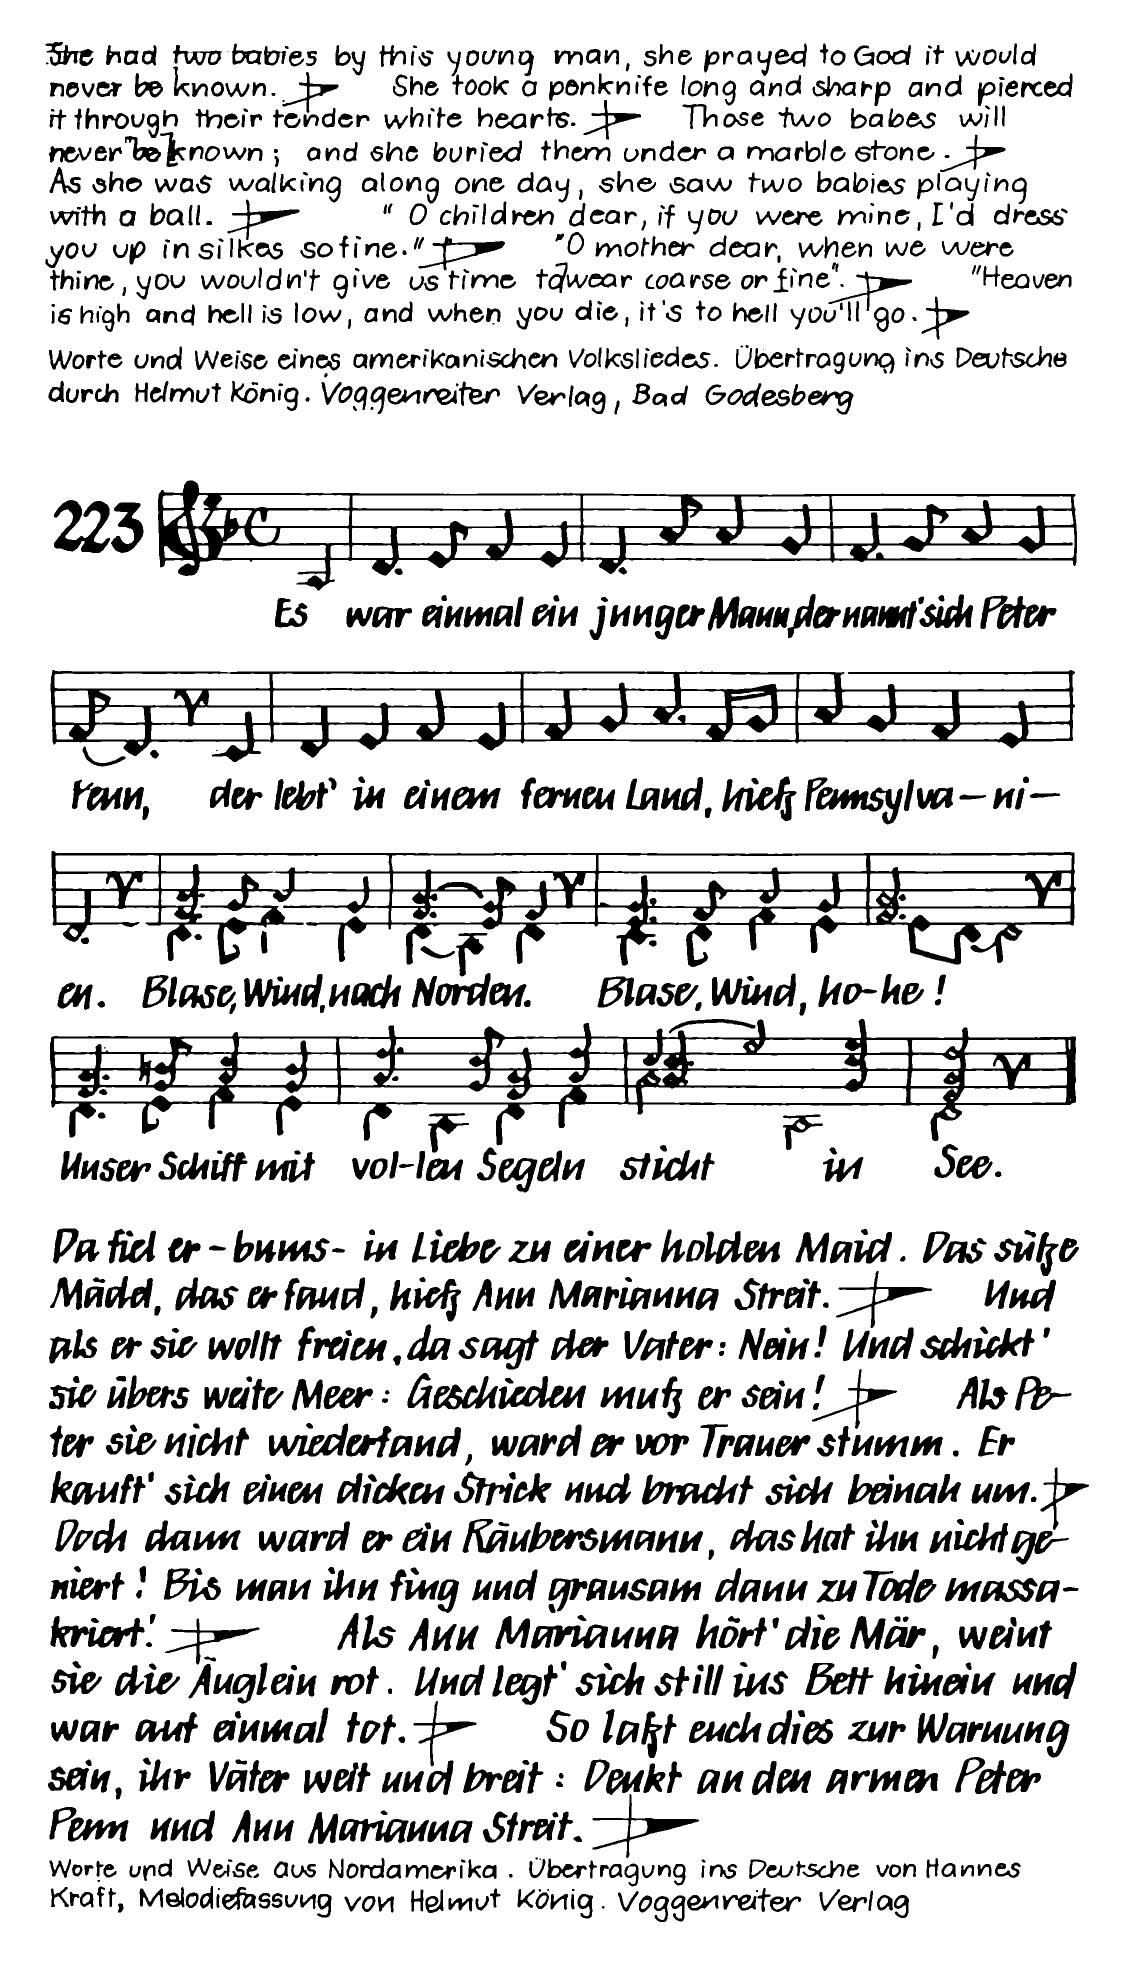 She had two babies by this young man, she prayed to God it would
never be known. She took a penknife long and sharp and pierced
it through their tender white hearts. Those two babes will
never be known; and she buried them under a marble stone.
As she was walking along one day, she saw two babies playing
with a ball. "O children dear, if you were mine, I'd dress
you up in silkes so fine." "O mother dear, when we were
thine, you wouldn't give us time to wear coarse or fine". "Heaven
is high and hell is low, and when you die, it's to hell you'll go.
Worte und Weise eines amerikanischen Volksliedes. Übertragung ins Deutsche
durch Helmut König. Voggenreiter Verlag, Bad Godesberg
223
Es war einmal ein junger Mann, der nannt' sich Peter
Penn, der lebt' in einem fernen Land, hieß Pennsylva-ni-
en. Blase, Wind, nach Norden. Blase, Wind, ho-he!
Unser Schiff mit vol-len Segeln sticht in See.
Da fiel er - bums - in Liebe zu einer holden Maid. Das süße
Mädel, das er fand, hieß Ann Marianna Streit. Und
als er sie wollt freien, da sagt der Vater: Nein! Und schickt'
sie übers weite Meer: Geschieden muß er sein! Als Pe-
ter sie nicht wiederfand, ward er vor Trauer stumm. Er
kauft' sich einen dicken Strick und bracht sich beinah um.
Doch dann ward er ein Räubersmann, das hat ihn nicht ge-
niert! Bis man ihn fing und grausam dann zu Tode massa-
kriert! Als Ann Marianna hört' die Mär, weint
sie die Äuglein rot. Und legt' sich still ins Bett hinein und
war auf einmal tot. So laßt euch dies zur Warnung
sein, ihr Väter weit und breit: Denkt an den armen Peter
Penn und Ann Marianna Streit.
Worte und Weise aus Nordamerika. Übertragung ins Deutsche von Hannes
Kraft, Melodiefassung von Helmut König. Voggenreiter Verlag